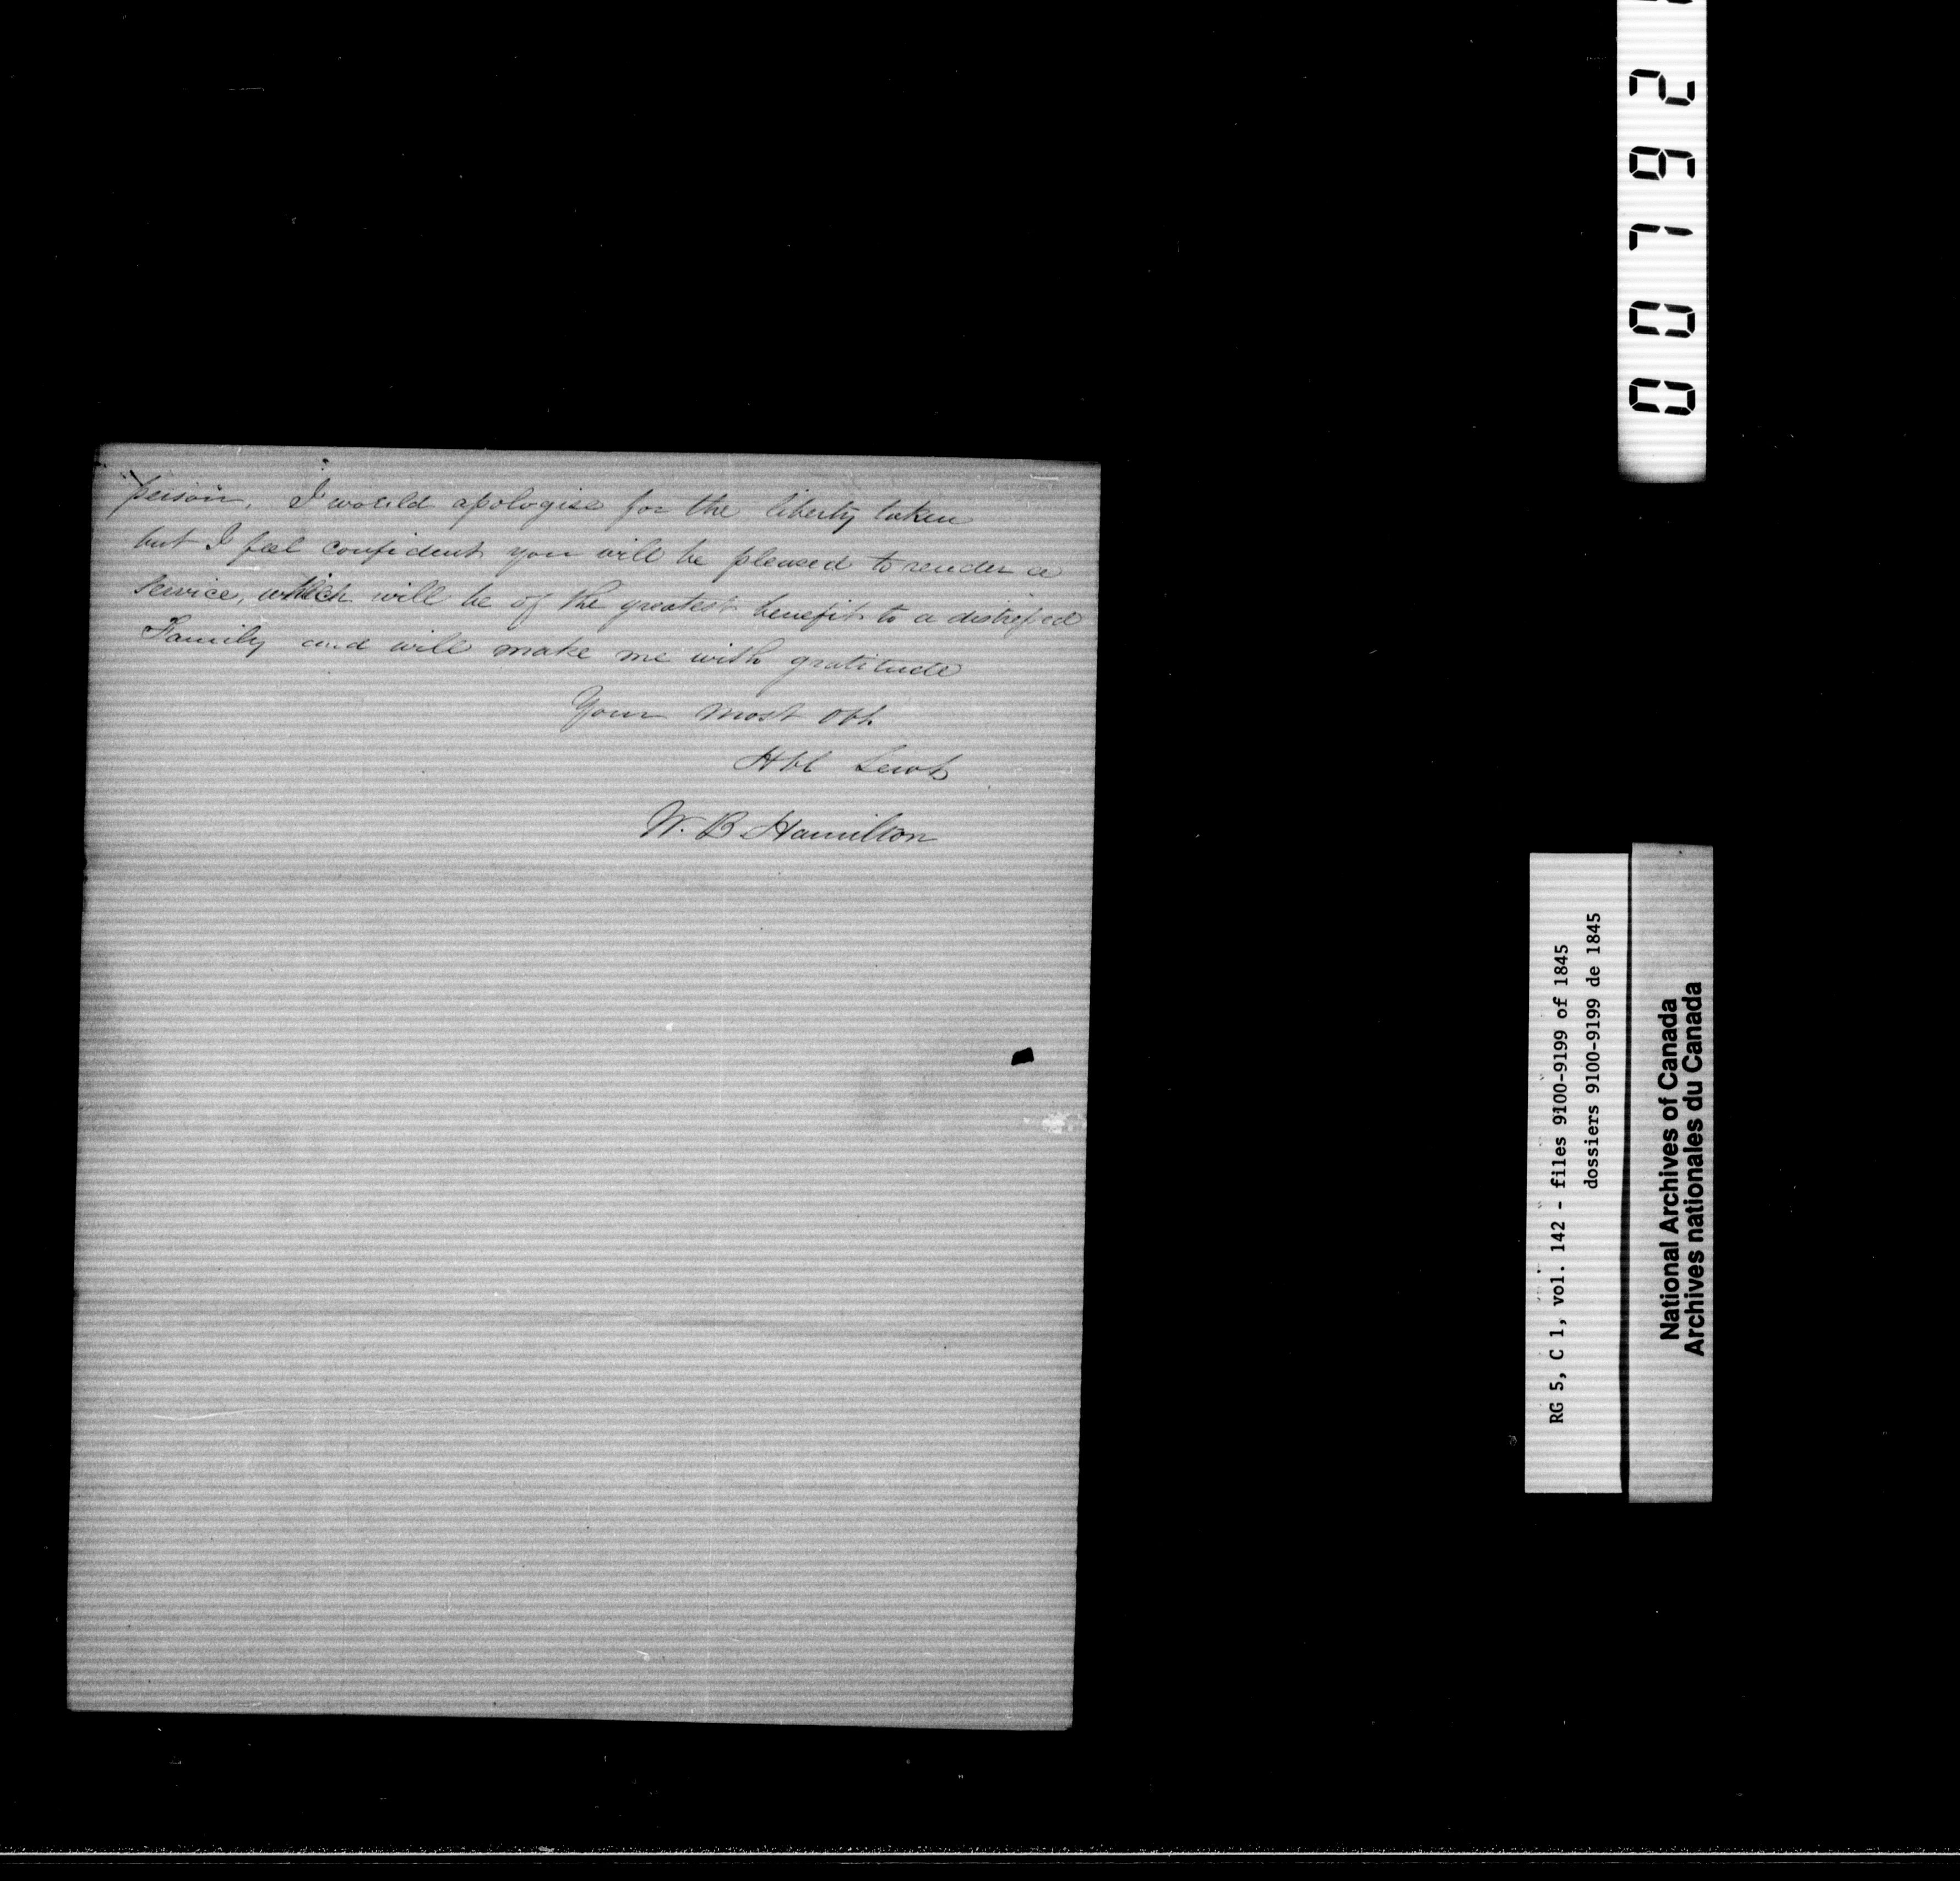 person. I would apologise for the liberty taken
but I feel confident you will be pleased to render a
service, which will be of the greatest benefit to a distressed
Family and will make me with gratitude
Your most Obt.
Hbl Servt
W. B Hamilton
RG 5, C 1, vol. 142 - files 9100-9199 of 1845
dossiers 9100-9199 de 1845
National Archives of Canada
Archives nationales du Canada